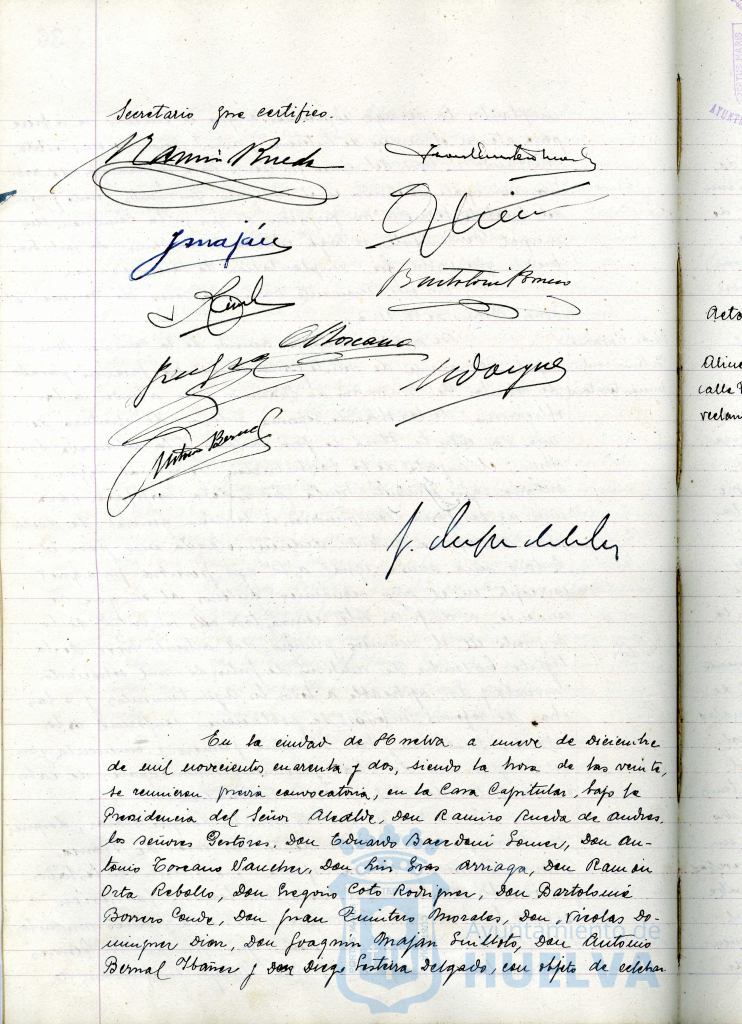 Secretario que certifico.
Ramiro Rueda
JMaján
Bartolomé Borrero
A Toscano
N Domguez
Antonio Bernal
En la ciudad de Huelva a nueve de Diciembre
de mil novecientos cuarenta y dos, siendo la hora de las veinte,
se reunieron previa convocatoria, en la Casa Capitular, bajo la
Presidencia del Señor Alcalde, Don Ramiro Rueda de Andres,
los señores Gestores, Don Eduardo Gomez, Don An-
tonio Toscano Sanchez, Don Luis Gras Arriaga, Don Ramon
Orta Rebollo, Don Gregorio Coto Rodriguez, Don Bartolomé
Borrero Conde, Don Juan Quintero Morales, Don Nicolas Do-
minguez Diaz, Don Joaquin Maján Guilloto, Don Antonio
Bernal Ibañez y Don Diego Delgado, con objeto de celebrar
Ayuntamiento de
HUELVA
Acta
calle
reclam